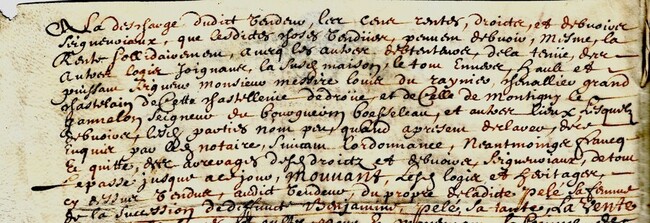 A La descharge dudict Vendeur, les cens rentes, droictz, et debvoirs
seigneuriaux, que lesdictes choses Vendües, peuvent debvoir, mesme, la
Rente sollidairement, avecq les autres destenteurs, de la tenüe, des
autres logis joignant, la susd maison, le tout Envers, hault et
puissant seigneur monsieur messire louis du raynier, chevallier grand
chastelain de cette chastellenie de droüe, et de celle de Montigny le
gannelon seigneur du bourguerin boesseleau, et autres lieux Lesquelz
debvoirs, lesd parties nont peu, quand a present declarer, de ce
Enquis par led notaire, suivant lordonnance, Neantmoings francq
et quitte, des arrerages desd droictz et debvoirs, seigneuriaux, de tout
le passé jusques a ce jour, Mouvant, Lesd logis et heritages,
cy dessus Vendus, audict Vendeur, du propre de ladicte sa femme
de la succession de deffuncte Benjamine, sa tante, La Vente